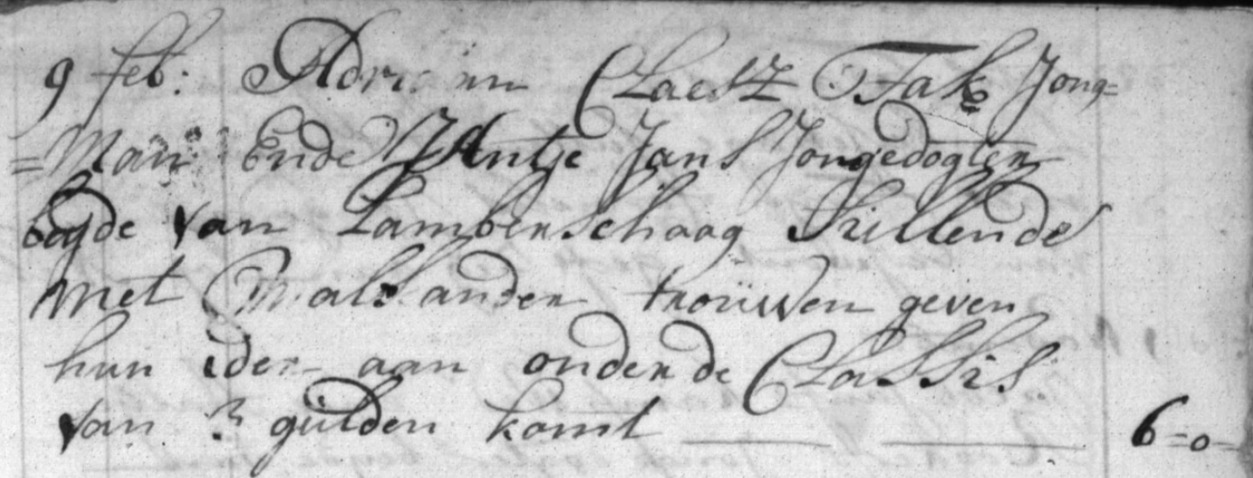 9 feb: Adriaan Claesz Tak Jong=
=Man Ende Antje Jans Jongedogter
beyde van Lambenschaag Sullende
met Malkander trouwen geven
hun ider aan onder de Classis
van 3 gulden komt 6=0=